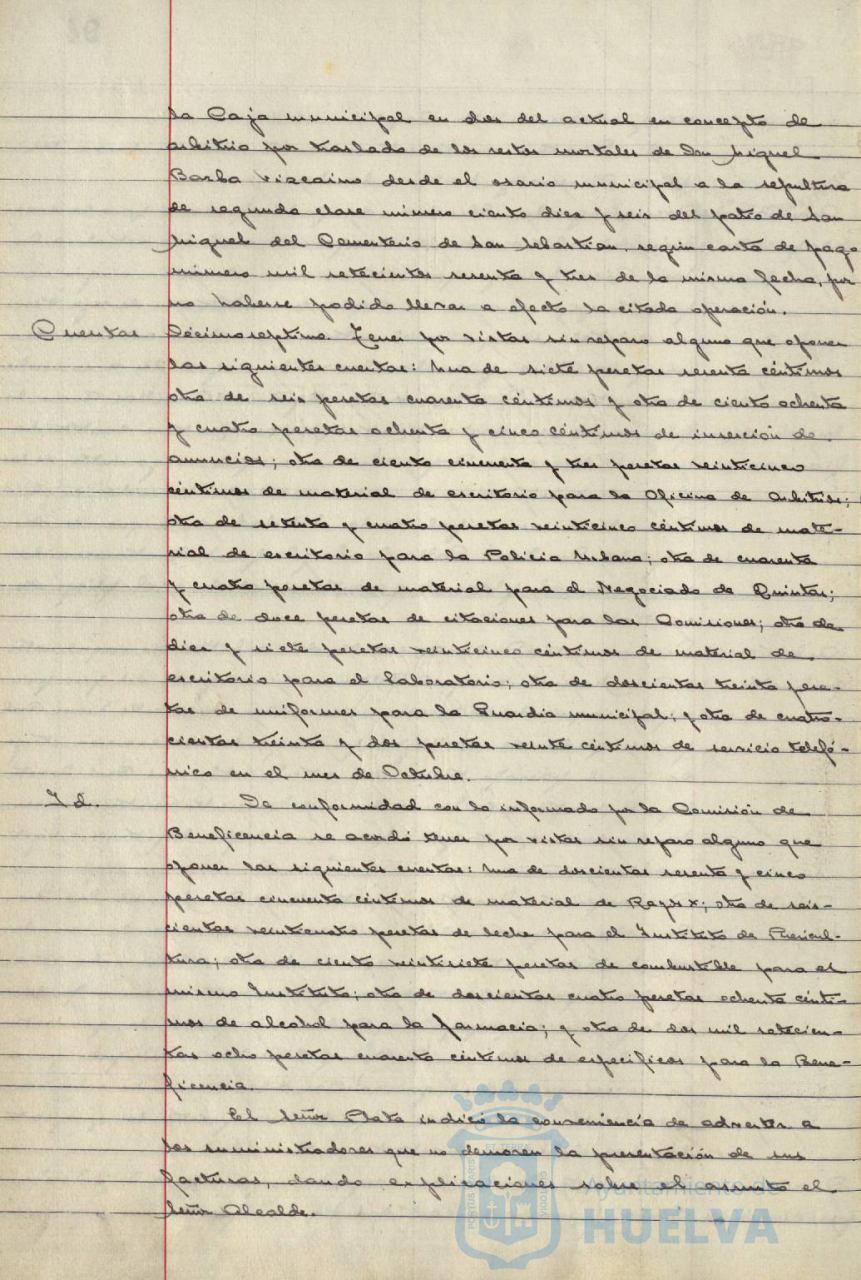 la Caja municipal en dos del actual en concepto de
arbitrio por traslado de los restos mortales de Don Miguel
Barba Vizcaino desde el osario municipal a la sepultura
de segunda clase número ciento diez y seis del patio de San
Miguel del Cementerio de San Sebastian, según carta de pago
número mil setecientos sesenta y tres de la misma fecha, por
no haberse podido llevar a efecto la citada operación.
Cuentas Décimoseptimo. Tener por vistas sin reparo alguno que oponer
las siguientes cuentas: Una de siete pesetas sesenta céntimos
otra de seis pesetas cuarenta céntimos y otra de ciento ochenta
y cuatro pesetas ochenta y cinco céntimos de inserción de
anuncios; otra de ciento cincuenta y tres pesetas veinticinco
céntimos de material de escritorio para la Oficina de Arbitrios;
otra de setenta y cuatro pesetas veinticinco céntimos de mate-
rial de escritorio para la Policia Urbana; otra de cuarenta
y cuatro pesetas de material para el Negociado de Quintas;
otra de doce pesetas de citaciones para las Comisiones; otra de
diez y siete pesetas veinticinco céntimos de material de
escritorio para el Laboratorio; otra de doscientas treinta pese-
tas de uniformes para la Guardia municipal; y otra de cuatro-
cientas treinta y dos pesetas veinte céntimos de servicio telefó-
nico en el mes de Octubre.
Id. De conformidad con lo informado por la Comisión de
Beneficencia se acordó tener por vistas sin reparo alguno que
oponer las siguientes cuentas: Una de doscientas sesenta y cinco
pesetas cincuenta céntimos de material de Rayos X; otra de seis-
cientas veinticuatro pesetas de leche para el Instituto de Puericul-
tura; otra de ciento veintisiete pesetas de combustible para el
mismo Instituto; otra de doscientas cuatro pesetas ochenta cénti-
mos de alcohol para la farmacia; y otra de dos mil setecien-
tas ocho pesetas cuarenta céntimos de especificos para la Bene-
ficencia.
El Señor Plata indicó la conveniencia de advertir a
los suministradores que no demoren la presentación de sus
facturas, dando explicaciones sobre el asunto el
Señor Alcalde.
Ayuntamiento de
HUELVA